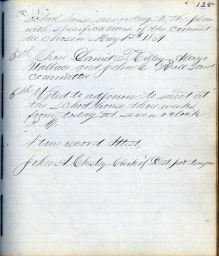 125
school house according to the plan
and specifications of the Committee
as chosen May 1st 1861
5th Chose Daniel S. Kelley
Wallace and John C. Hall
Committee
6th Voted to adjourn to meet at
the school house three weeks
from today at seven o clock
A true record Attest
John A. Clerk of Dist pro tempore